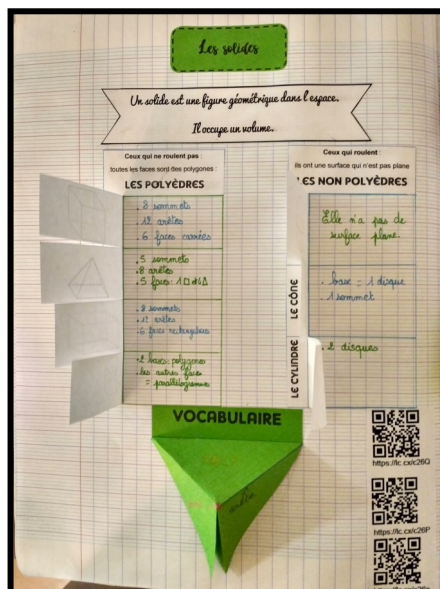 Les solides
Un solide est une figure géométrique dans l'espace.
Il occupe un volume.
Ceux qui ne roulent pas :
toutes les faces sont des polygones :
LES POLYÈDRES
. 8 sommets
. 12 arêtes
. 6 faces carrées
. 5 sommets
. 8 arêtes
. 5 faces : 1 □ et 4 Δ
. 8 sommets
. 12 arêtes
. 6 faces rectangulaires
. 2 bases : polygones
. les autres faces
= parallélogrammes
Ceux qui roulent :
ils ont une surface qui n'est pas plane
LES NON POLYÈDRES
Elle n'a pas de
surface plane.
LE CÔNE
. base = 1 disque
. 1 sommet
LE CYLINDRE
. 2 disques
VOCABULAIRE
arête
https://lc.cx/c26Q
https://lc.cx/c26P